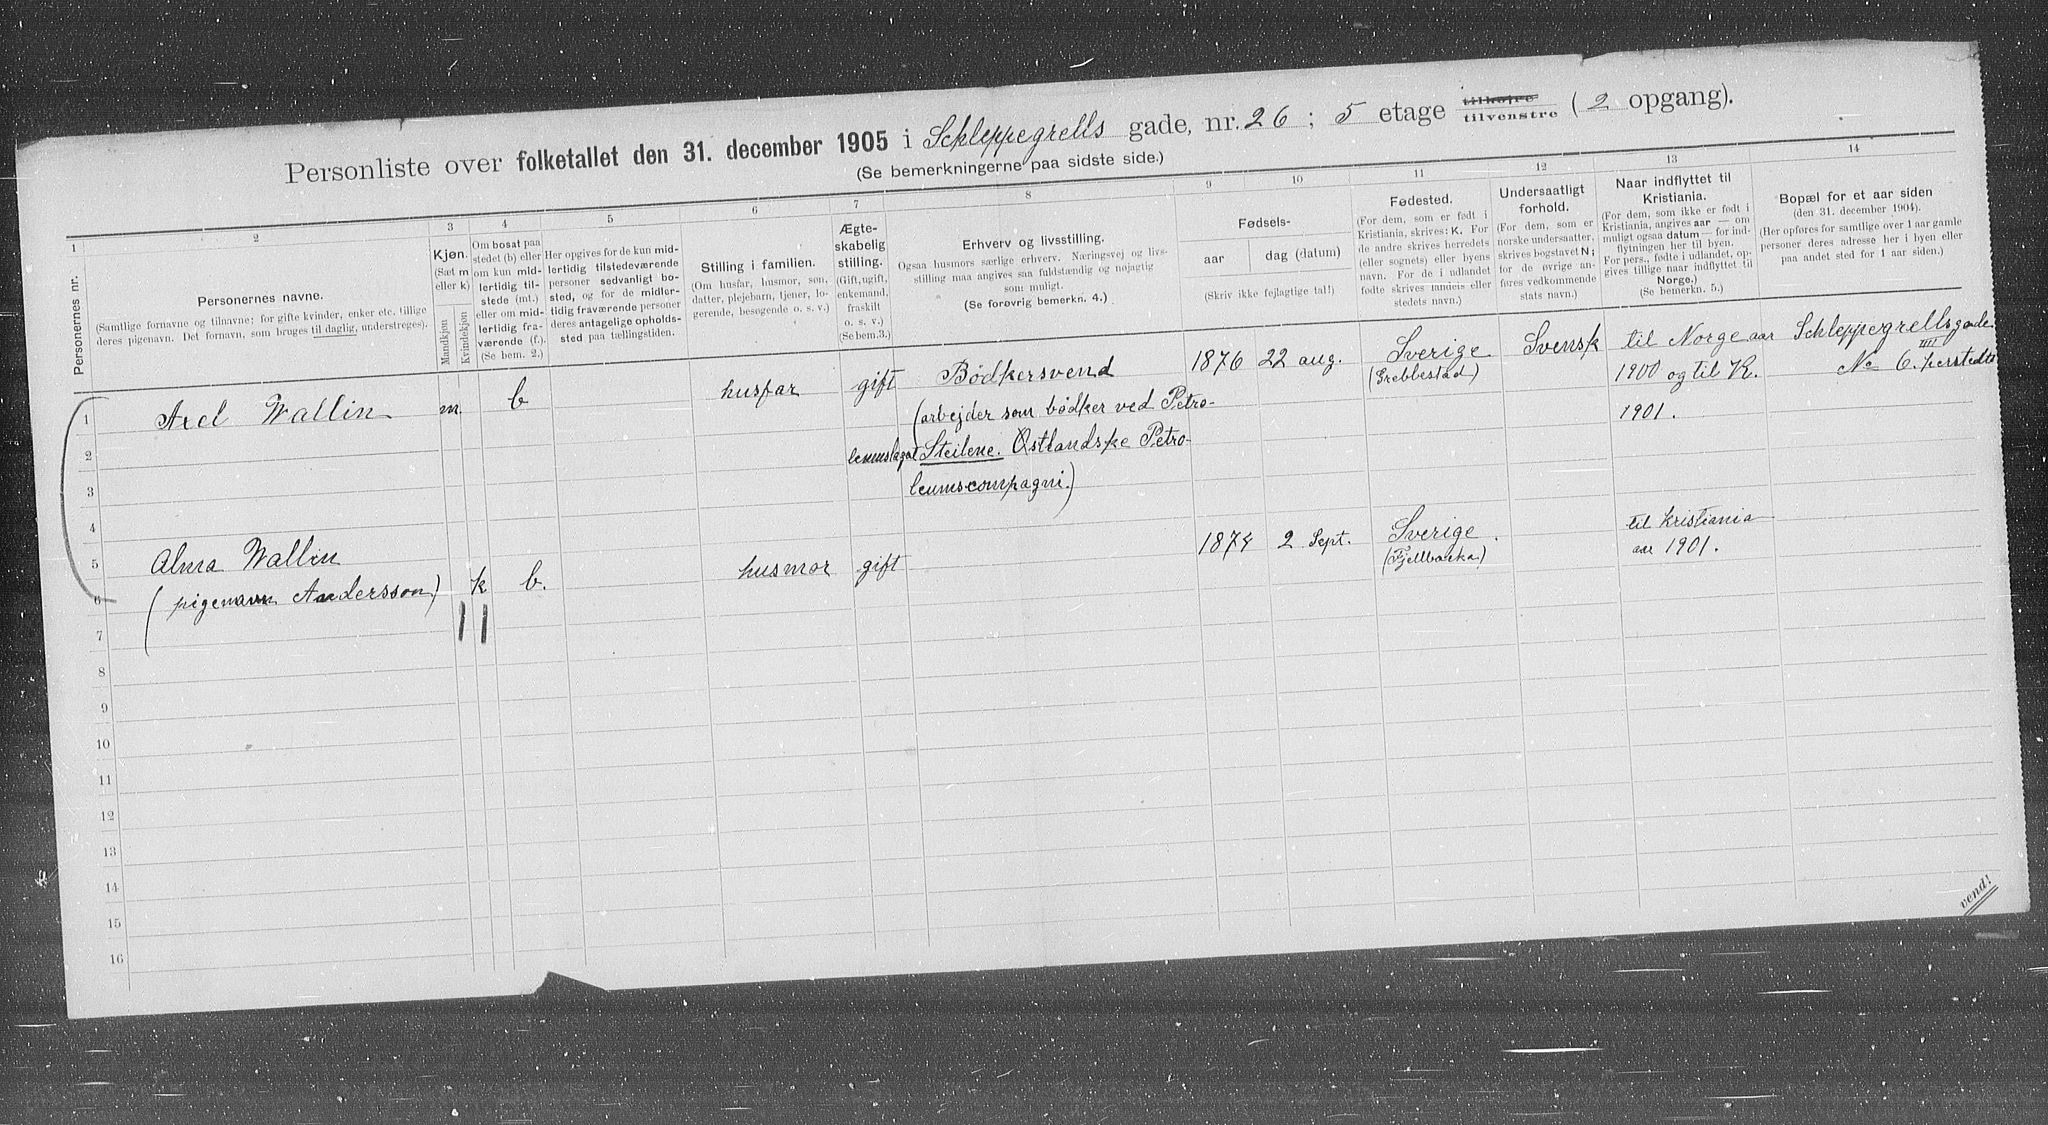 Personliste over folketallet den 31. december 1905 i Schleppegrells gade, nr. 26 ; 5 etage tilhøjre tilvenstre ( 2 opgang).
(Se bemerkningerne paa sidste side.)
1
Personernes nr.
2
Personernes navne.
(Samtlige fornavne og tilnavne; for gifte kvinder, enker etc. tillige
deres pigenavn. Det fornavn, som bruges til daglig, understreges).
3
Kjøn.
(Sæt m
eller k)
Mandkjøn
Kvindekjøn
4
Om bosat paa
stedet (b) eller
om kun mid-
lertidig til-
stede (mt.)
eller om mid-
lertidig fra-
værende (f.).
(Se bem. 2.)
5
Her opgives for de kun mid-
lertidig tilstedeværende
personer sedvanligt bo-
sted, og for de midler-
tidig fraværende personer
deres antagelige opholds-
sted paa tællingstiden.
6
Stilling i familien.
(Om husfar, husmor, søn,
datter, plejebarn, tjener, lo-
gerende, besøgende o. s. v.)
7
Ægte-
skabelig
stilling.
(Gift, ugift,
enkemand,
fraskilt
o. s. v.)
(Se bem.3.)
8
Erhverv og livsstilling.
Ogsaa husmors særlige erhverv. Næringsvej og livs-
stilling maa angives saa fuldstændig og nøjagtig
som muligt.
(Se forøvrig bemerkn. 4.)
Fødsels-
9
aar
10
dag (datum)
(Skriv ikke fejlagtige tal!)
11
Fødested.
(For dem, som er født i
Kristiania, skrives: K. For
de andre skrives herredets
(eller sognets) eller byens
navn. For de i udlandet
fødte skrives landets eller
stedets navn.)
12
Undersaatligt
forhold.
(For dem, som er
norske undersaatter,
skrives bogstavet N;
for de øvrige an-
føres vedkommende
stats navn.)
13
Naar indflyttet til
Kristiania.
(For dem, som ikke er født i
Kristiania, angives aar — om
muligt ogsaa datum — for ind-
flytningen her til byen.
For pers., fødte i udlandet, op-
gives tillige naar indflyttet til
Norge.)
(Se bemerkn. 5.)
14
Bopæl for et aar siden
(den 31. december 1904).
(Her opføres for samtlige over 1 aar gamle
personer deres adresse her i byen eller
paa andet sted for 1 aar siden.)
1 Axel Wallin m. b husfar gift Bødkersvend 1876 22 aug. Sverige Svensk til Norge aar Schleppegrellsgade
(Grebbestad) 1900 og til K. No 6. IIII
(arbejder som bødker ved Petro- 1901.
2 leumslaget Steilene. Østlandske Petro-
3 leumscompagni.)
4
5 Alma Wallin husmor gift 1874 2 Sept. Sverige. til Kristiania
(Fjellbacka) aar 1901.
6 (pigenavn Andersson) k b.
7
8
9
10
11
12
13
14
15
16
vend!